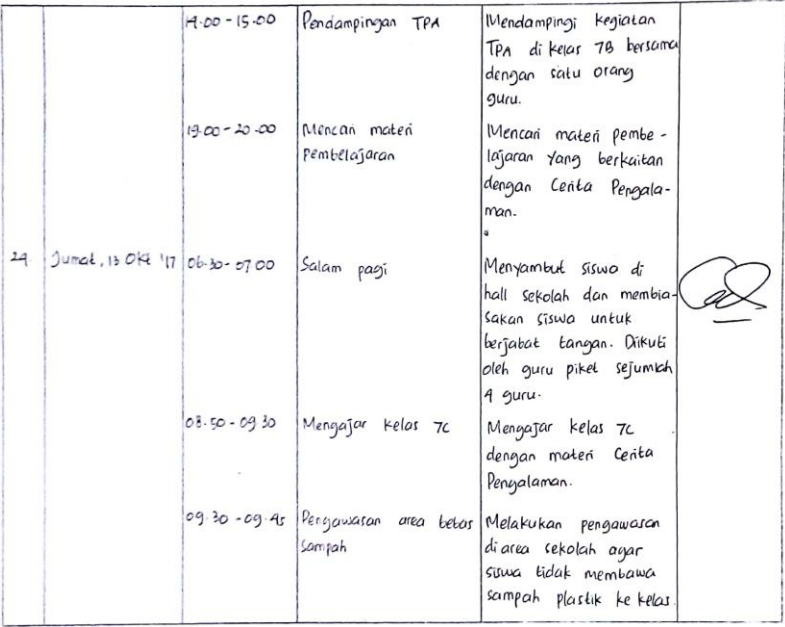 14.00 - 15.00 Pendampingan TPA Mendampingi kegiatan
TPA di kelas 7B bersama
dengan satu orang
guru.
19.00 - 20.00 Mencari materi Mencari materi pembe -
Pembelajaran lajaran yang berkaitan
dengan Cerita Pengala-
man.
24. Jumat, 13 Okt '17 06.30 - 07.00 Salam pagi Menyambut siswa di
hall sekolah dan membia-
sakan siswa untuk
berjabat tangan. Diikuti
oleh guru piket sejumlah
4 guru.
08.50 - 09.30 Mengajar kelas 7C Mengajar kelas 7C
dengan materi Cerita
Pengalaman.
09.30 - 09.45 Pengawasan area bebas Melakukan pengawasan
sampah di area sekolah agar
siswa tidak membawa
sampah plastik ke kelas.